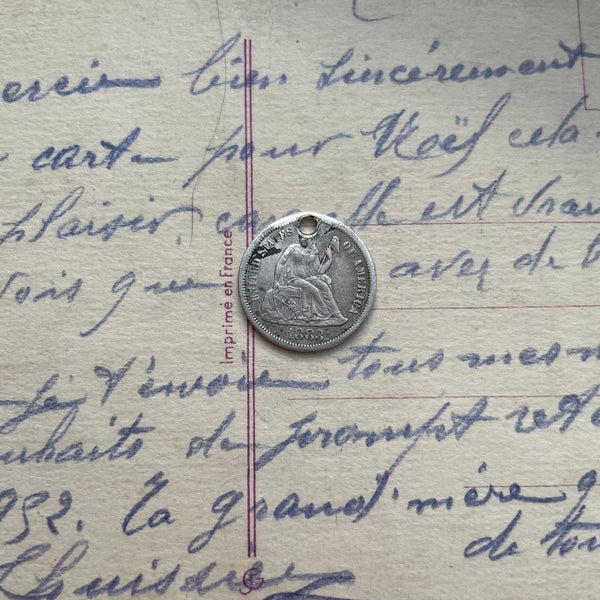 ercie bien sincèrement
carte pour Noël cela
plaisir, car elle est vrai
vois que avez de b
Je t'envoie tous mes m
ouhaits de prompt reto
1952. Ta grand'mère q
de tou
Imprimé en France
UNITED STATES OF AMERICA
1883